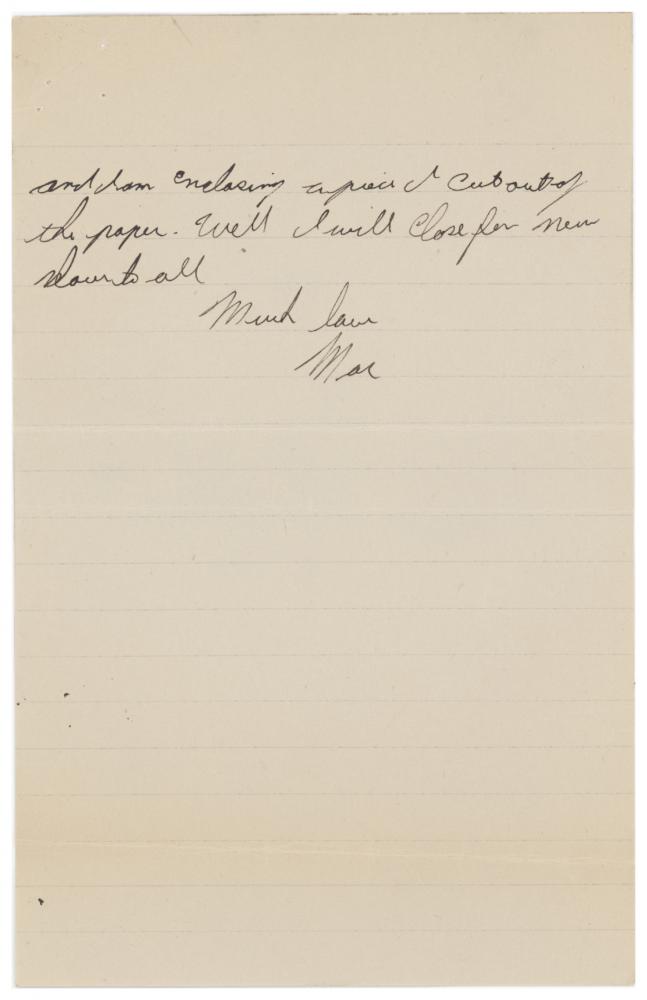 and I am enclosing a piece I cut out of
the paper. Well I will close for now
love to all
Much love
Mac